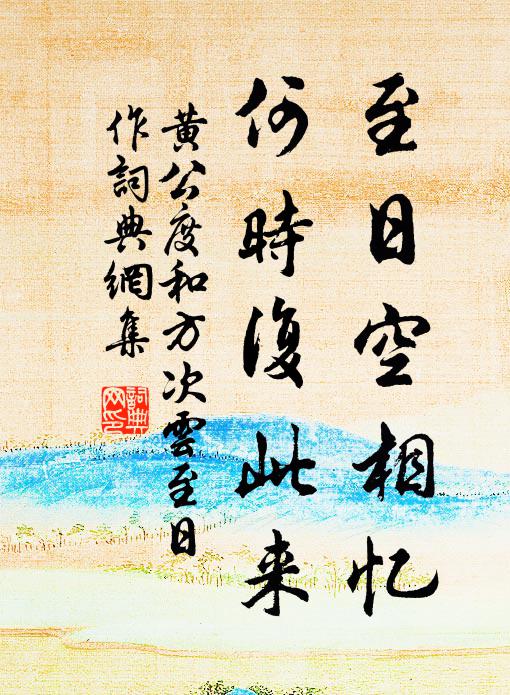 至日空相忆
何時復此来
黄公度和方次雲至日
作詞典網集
詞典
网印